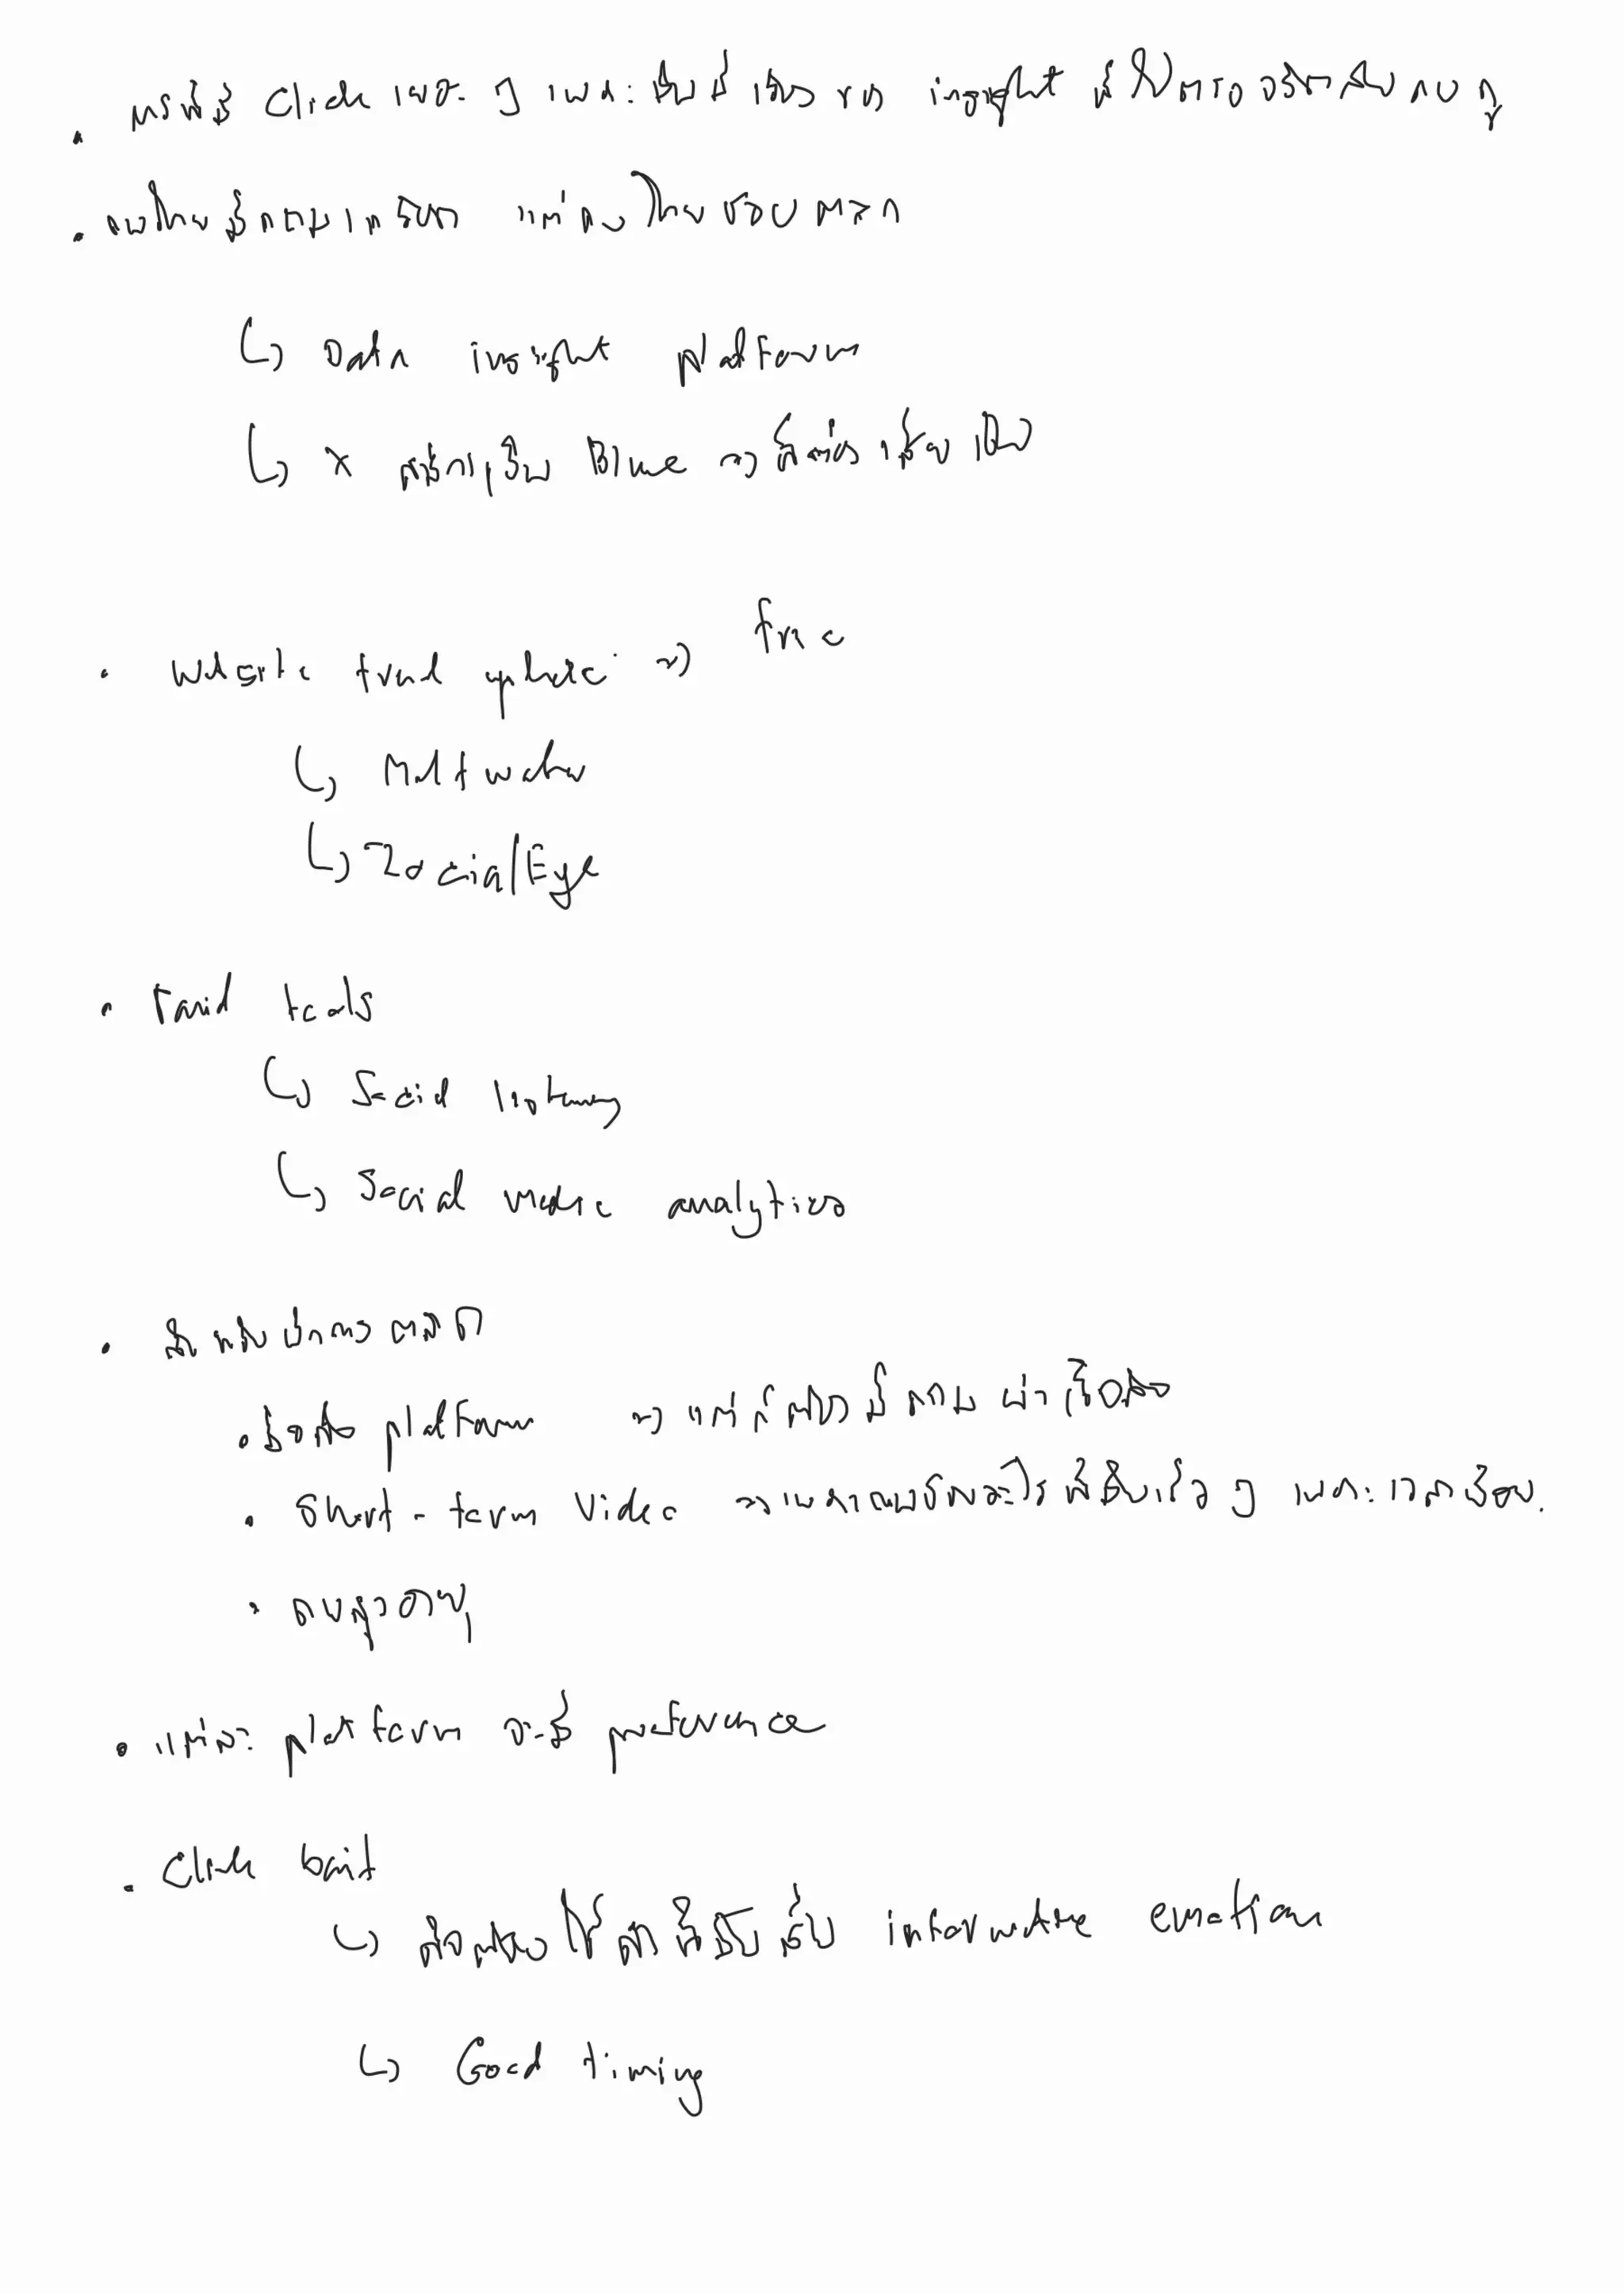 • การที่มี Click เยอะ ๆ เพราะมันมีเรื่องของ insight ที่ไปตรงจริตกับคนดู
• คนไทยมีความเครียด แต่คนไทยชอบตลก
↳ Data insight platform
↳ x Blue →
• Website trend update → free
↳ Meltwater
↳ ZocialEye
• Paid tools
↳ Social listening
↳ Social media analytics
• สำหรับนักการตลาด
• platform → แต่ก็ต้องมีความน่าเชื่อถือ
• Short-form Video → เพราะคนชอบอะไรที่สั้นเร็ว ๆ เพราะเวลาน้อย.
• คนสูงอายุ
• แต่ละ platform จะมี preference
• Click bait
↳ ต้องใช้คำที่มัน informative emotion
↳ Good timing